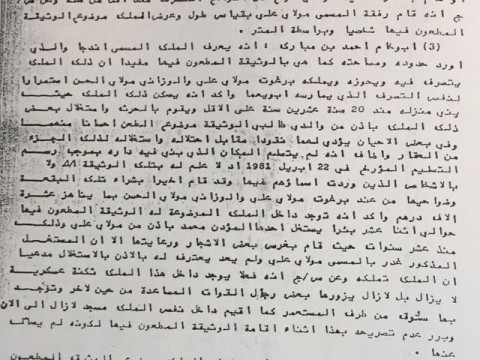 ج انه قام رفقة المسمى مولاي علي بقياس طول وعرض الملك موضوع الوثيقة
المطعون فيها شخصيا وبواسطة المتر .
(3) ابوكام احمد بن مبارك : انه يعرف الملك المسمى اندجا والذي
اورد حدوده ومساحته كما هي بالوثيقة المطعون فيها مفيدا ان ذلك الملك
يتصرف فيه ويحوزه ويملكه برغوت مولاي علي والوزاني مولاي الحسن استمرارا
لنفس التصرف الذي يمارسه ابويهما واكد انه يسكن ذلك الملك حيث
بنى منزله منذ 20 سنة عشرين سنة على الاقل ويقوم بالحرث واستغلال بعض
ذلك الملك باذن من والدي طالبي الوثيقة موضوع الطعن احسانا منهما
وفي بعض الاحيان يؤدي لهما نقودا مقابل احتلاله واستغلاله لذلك الجزء
من العقار واضاف انه لم يتسلم المكان الذي بنى فيه داره بموجب رسم
التسليم المؤرخ في 22 ابريل 1981 اذ لا علم له بتلك الوثيقة ولا
بالاشخاص الذين وردت اسماؤهم فيها وقد قام اخيرا بشراء تلك البقعة
وضواحيها من عند برغوت مولاي علي والوزاني مولاي الحسن بما يناهز عشرة
الاف درهم واكد انه توجد داخل الملك الموضوعة له الوثيقة المطعون فيها
حوالي اثنا عشر بئرا يستغل احدها المؤذن محمد باذن من مولاي علي وذلك
منذ عشر سنوات حيث قام بغرس بعض الاشجار ورعايتها الا ان المستغل
المذكور غدر بالمسمى مولاي علي ولم يعد يعترف له بالاذن بالاستغلال مدعيا
ان الملك تملكه وعن س/ج انه فعلا يوجد داخل هذا الملك ثكنة عسكرية
لا يزال بل لازال يزورها بعض رجال القوات المساعدة من حين لاخر وتوجد
بها من طرف المستعمر كما اقيم داخل نفس الملك مسجد لازال الى الان
وبرر عدم تصريحه بهذا اثناء اقامة الوثيقة المطعون فيها لكونه لم يسأل
عنها .